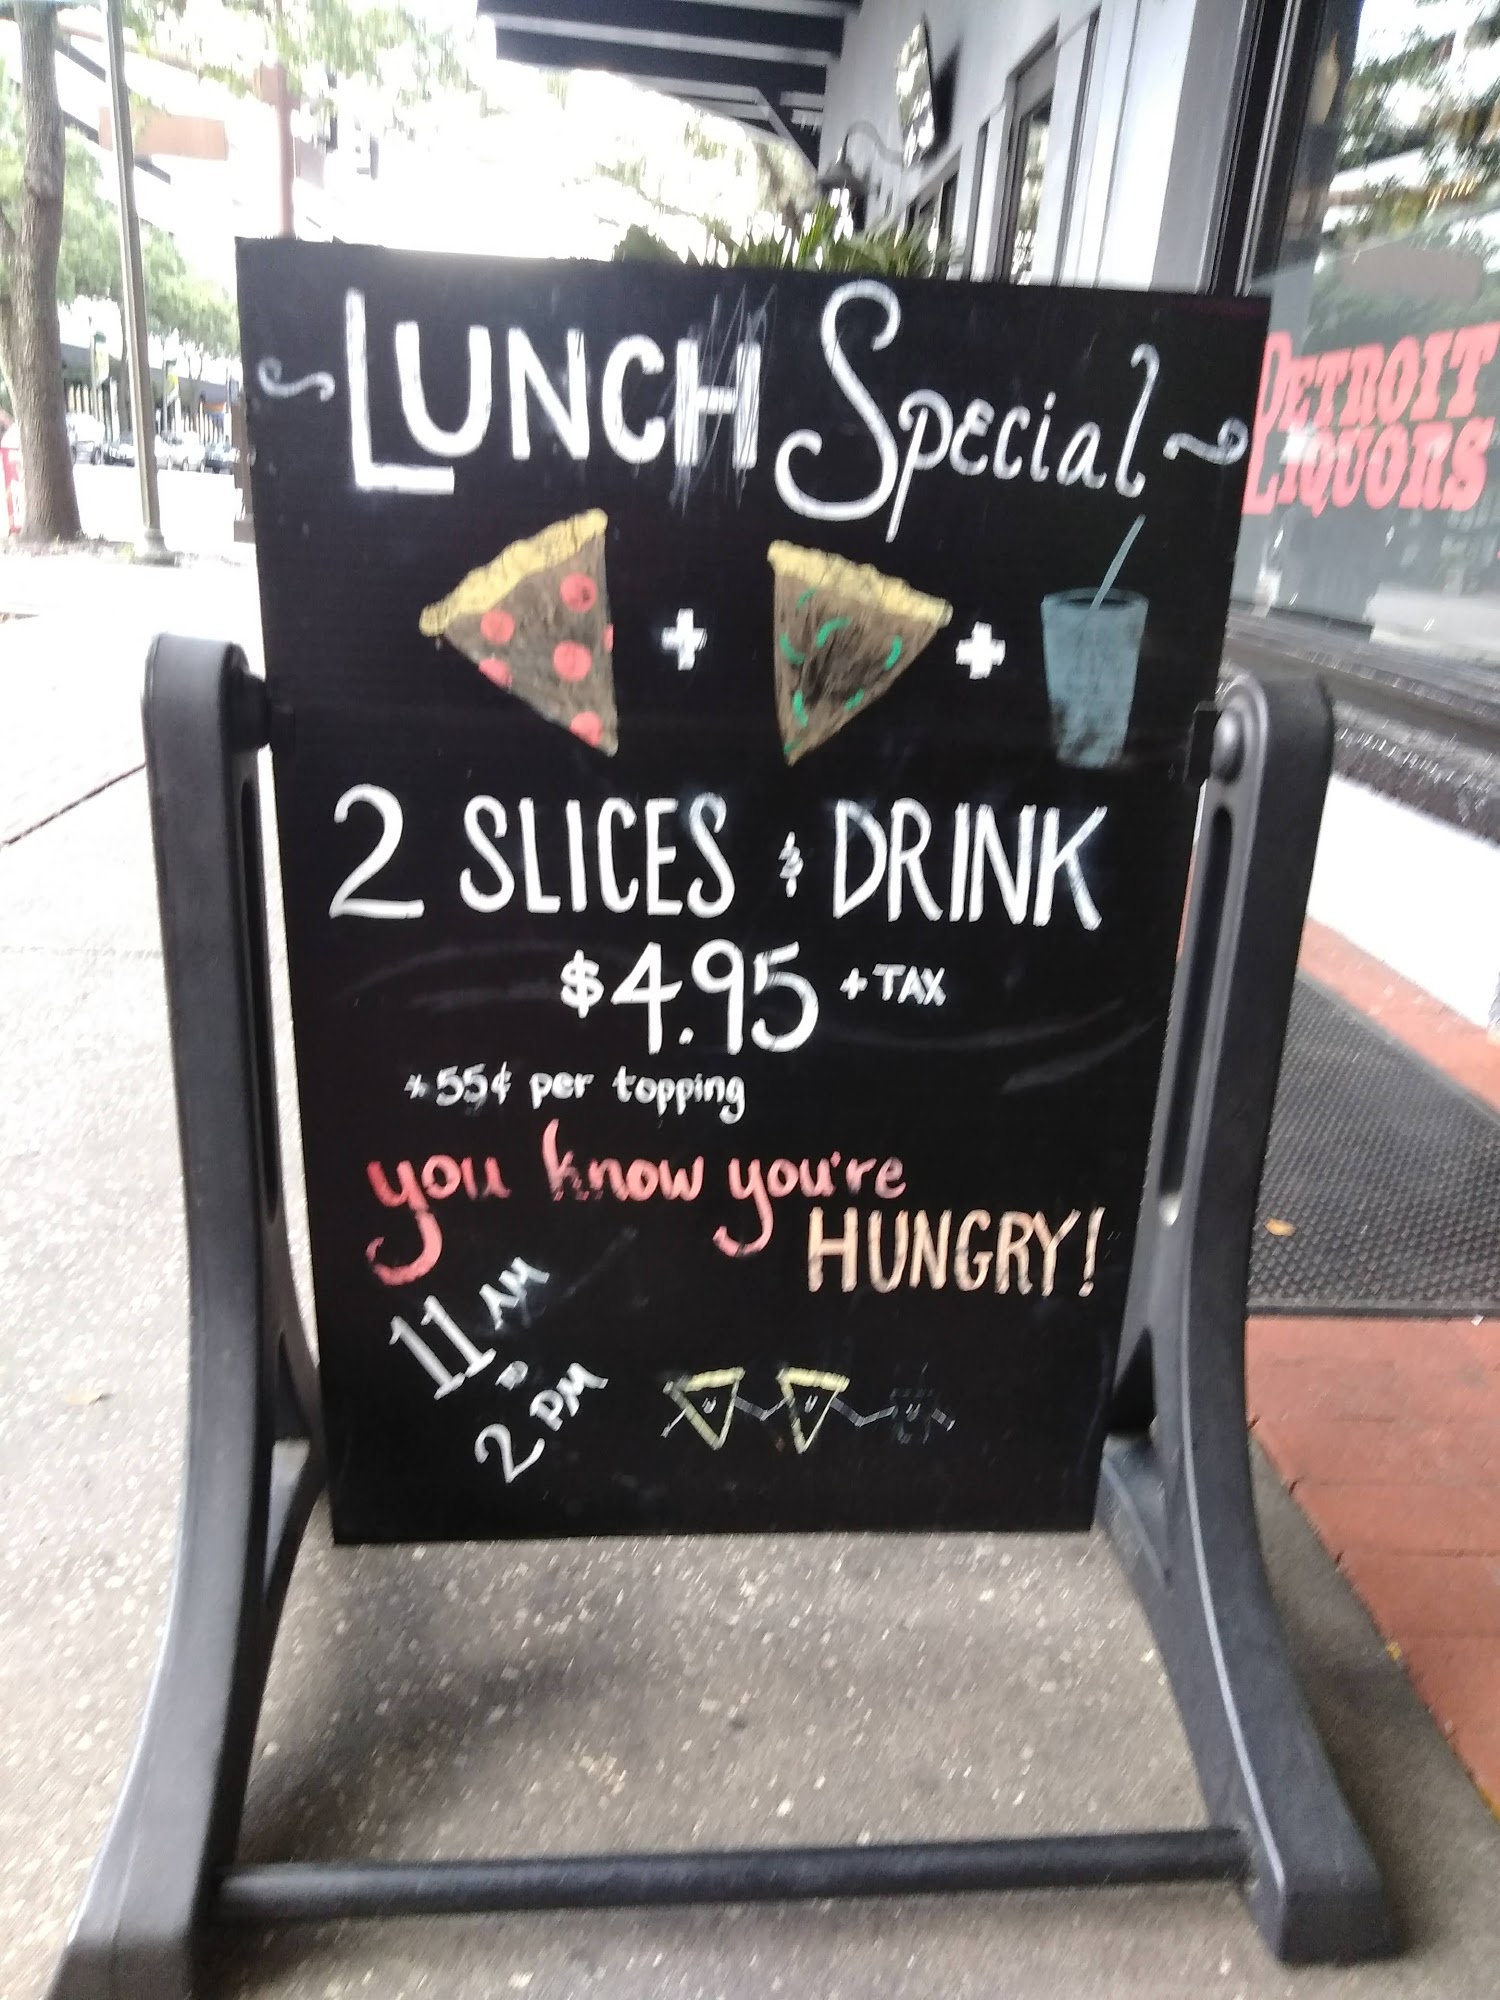 LUNCH Special
+ +
2 SLICES & DRINK
$4.95 + TAX
* 55¢ per topping
you know you're
HUNGRY!
11 AM
TO
2 PM
DETROIT
LIQUORS